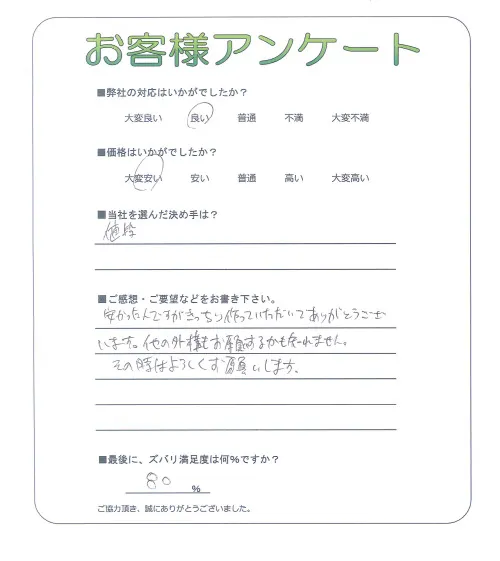 お客様アンケート
■弊社の対応はいかがでしたか?
大変良い 良い 普通 不満 大変不満
■価格はいかがでしたか?
大変安い 安い 普通 高い 大変高い
■当社を選んだ決め手は?
値段
■ご感想・ご要望などをお書き下さい。
安かったんですがきっちり作っていただいてありがとうござ
います。他の外構もお願するかも知れません。
その時はよろしくお願いします。
■最後に、ズバリ満足度は何%ですか?
80 %
ご協力頂き、誠にありがとうございました。